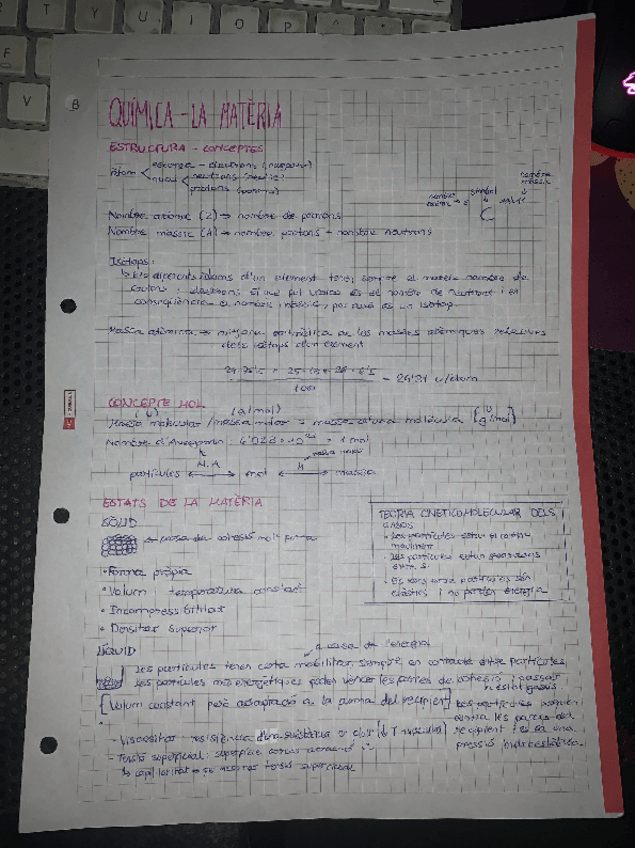 QUÍMICA - LA MATÈRIA
ESTRUCTURA - CONCEPTES
Àtom
escorça - electrons (negatiu)
nucli
neutrons (neutre)
protons (positiu)
símbol
Nombre atòmic (Z) → nombre de protons
Nombre màssic (A) → nombre protons + nombre neutrons
Isòtops:
↳ Els diferents àtoms d'un element tenen sempre el mateix nombre de
protons i electrons, el que pot variar és el nombre de neutrons i en
conseqüència el nombre màssic, per això és un isòtop.
Massa atòmica → mitjana aritmètica de les masses atòmiques relatives
dels isòtops d'un element
100
CONCEPTE MOL
(u) (g/mol)
Massa molecular / massa molar = massa d'una molècula
Nombre d'Avogadro: = 1 mol
N.A
massa molar
partícules ↔ mol ↔ massa
ESTATS DE LA MATÈRIA
SÒLID
→ força de cohesió molt forta
• Forma pròpia
• Volum i temperatura constant
• Incompressibilitat
• Densitat superior
TEORIA CINETICOMOLECULAR DELS
GASOS
- Les partícules estan en continu
moviment
- Les partícules estan separades
entre si
- Els xocs entre partícules són
elàstics i no perden energia
LÍQUID
a causa de l'energia
Les partícules tenen certa mobilitat, sempre en contacte entre partícules.
Les partícules més energètiques poden vèncer les forces de cohesió i passar
a estat gasós.
[Volum constant però adaptació a la forma del recipient]
Les partícules xoquen
contra les parets del
recipient i és a una
pressió hidrostàtica.
- Viscositat - resistència d'una substància a fluir
- Tensió superficial: superfície
↳ capil·laritat → tensió superficial